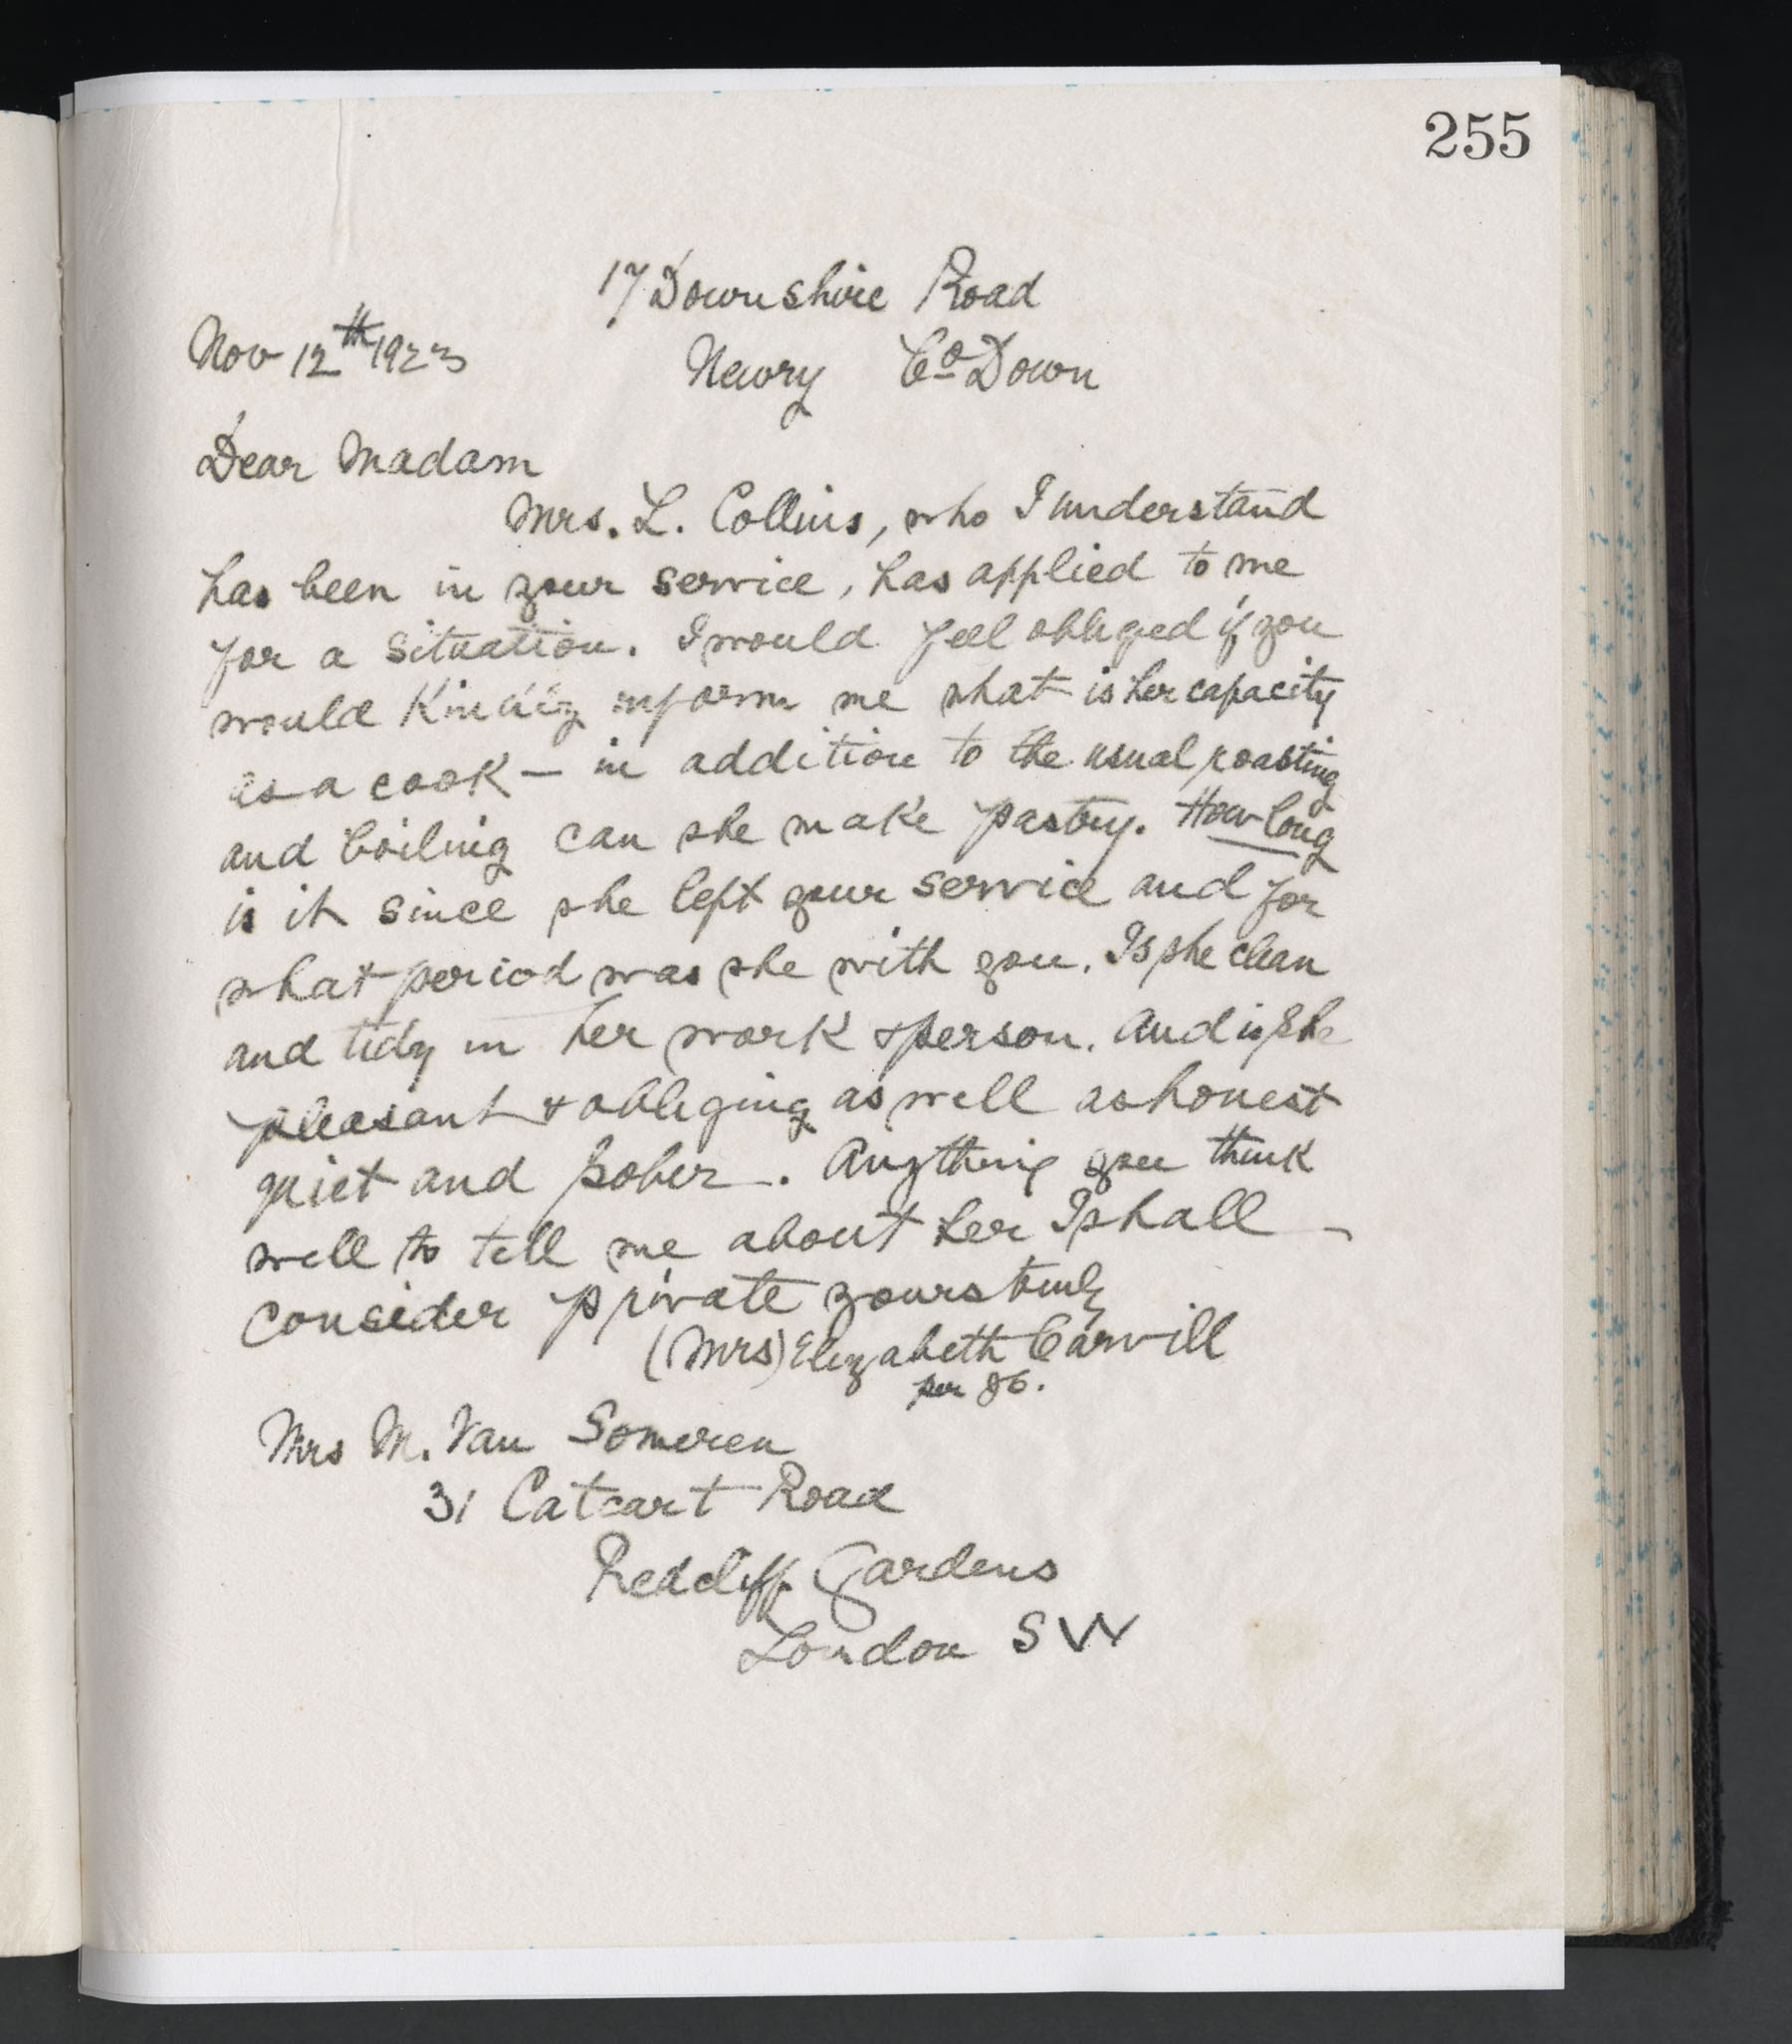 255
17 Downshire Road
Nov 12th 1923
Newry Co Down
Dear Madam
Mrs. L. Collins, who I understand
has been in your service, has applied to me
for a situation. I would feel obliged if you
would Kindly inform me what is her capacity
as a cook — in addition to the usual roasting
and boiling can she make pastry. How long
is it since she left your service and for
what period was she with you. Is she clean
and tidy in her work & person. And is she
pleasant & obliging as well as honest
quiet and sober. Anything you think
well to tell me about her I shall –
consider private yours truly
(Mrs) Elizabeth Carvill
per
Mrs M. Van Someren
31 Catcart Road
Redcliff Gardens
London SW